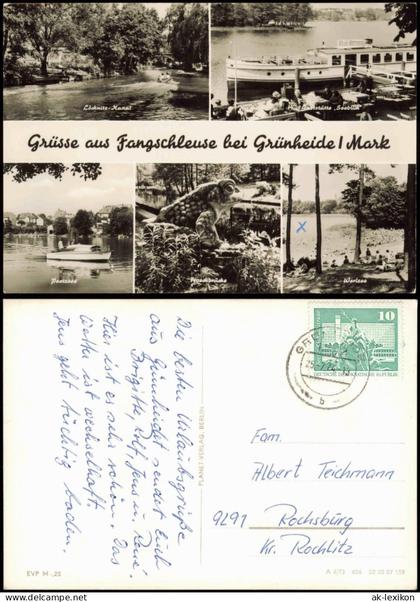 Löcknitz-Kanal
HO-Gaststätte „Seeblick“
Grüsse aus Fangschleuse bei Grünheide/Mark
Peetzsee
Froschbrücke
Werlsee
Die besten Urlaubsgrüße
aus Grünheide sendet Euch
Brigitte, Rolf, Jens u. René.
Hier ist es sehr schön. Das
Wetter ist wechselhaft.
Jens geht tüchtig baden.
PLANET-VERLAG, BERLIN
10
DEUTSCHE DEMOKRATISCHE REPUBLIK
b
Fam.
Albert Teichmann
9291 Rochsburg
Kr. Rochlitz
EVP M -,25
ak-lexikon
© ak-lexikon.de